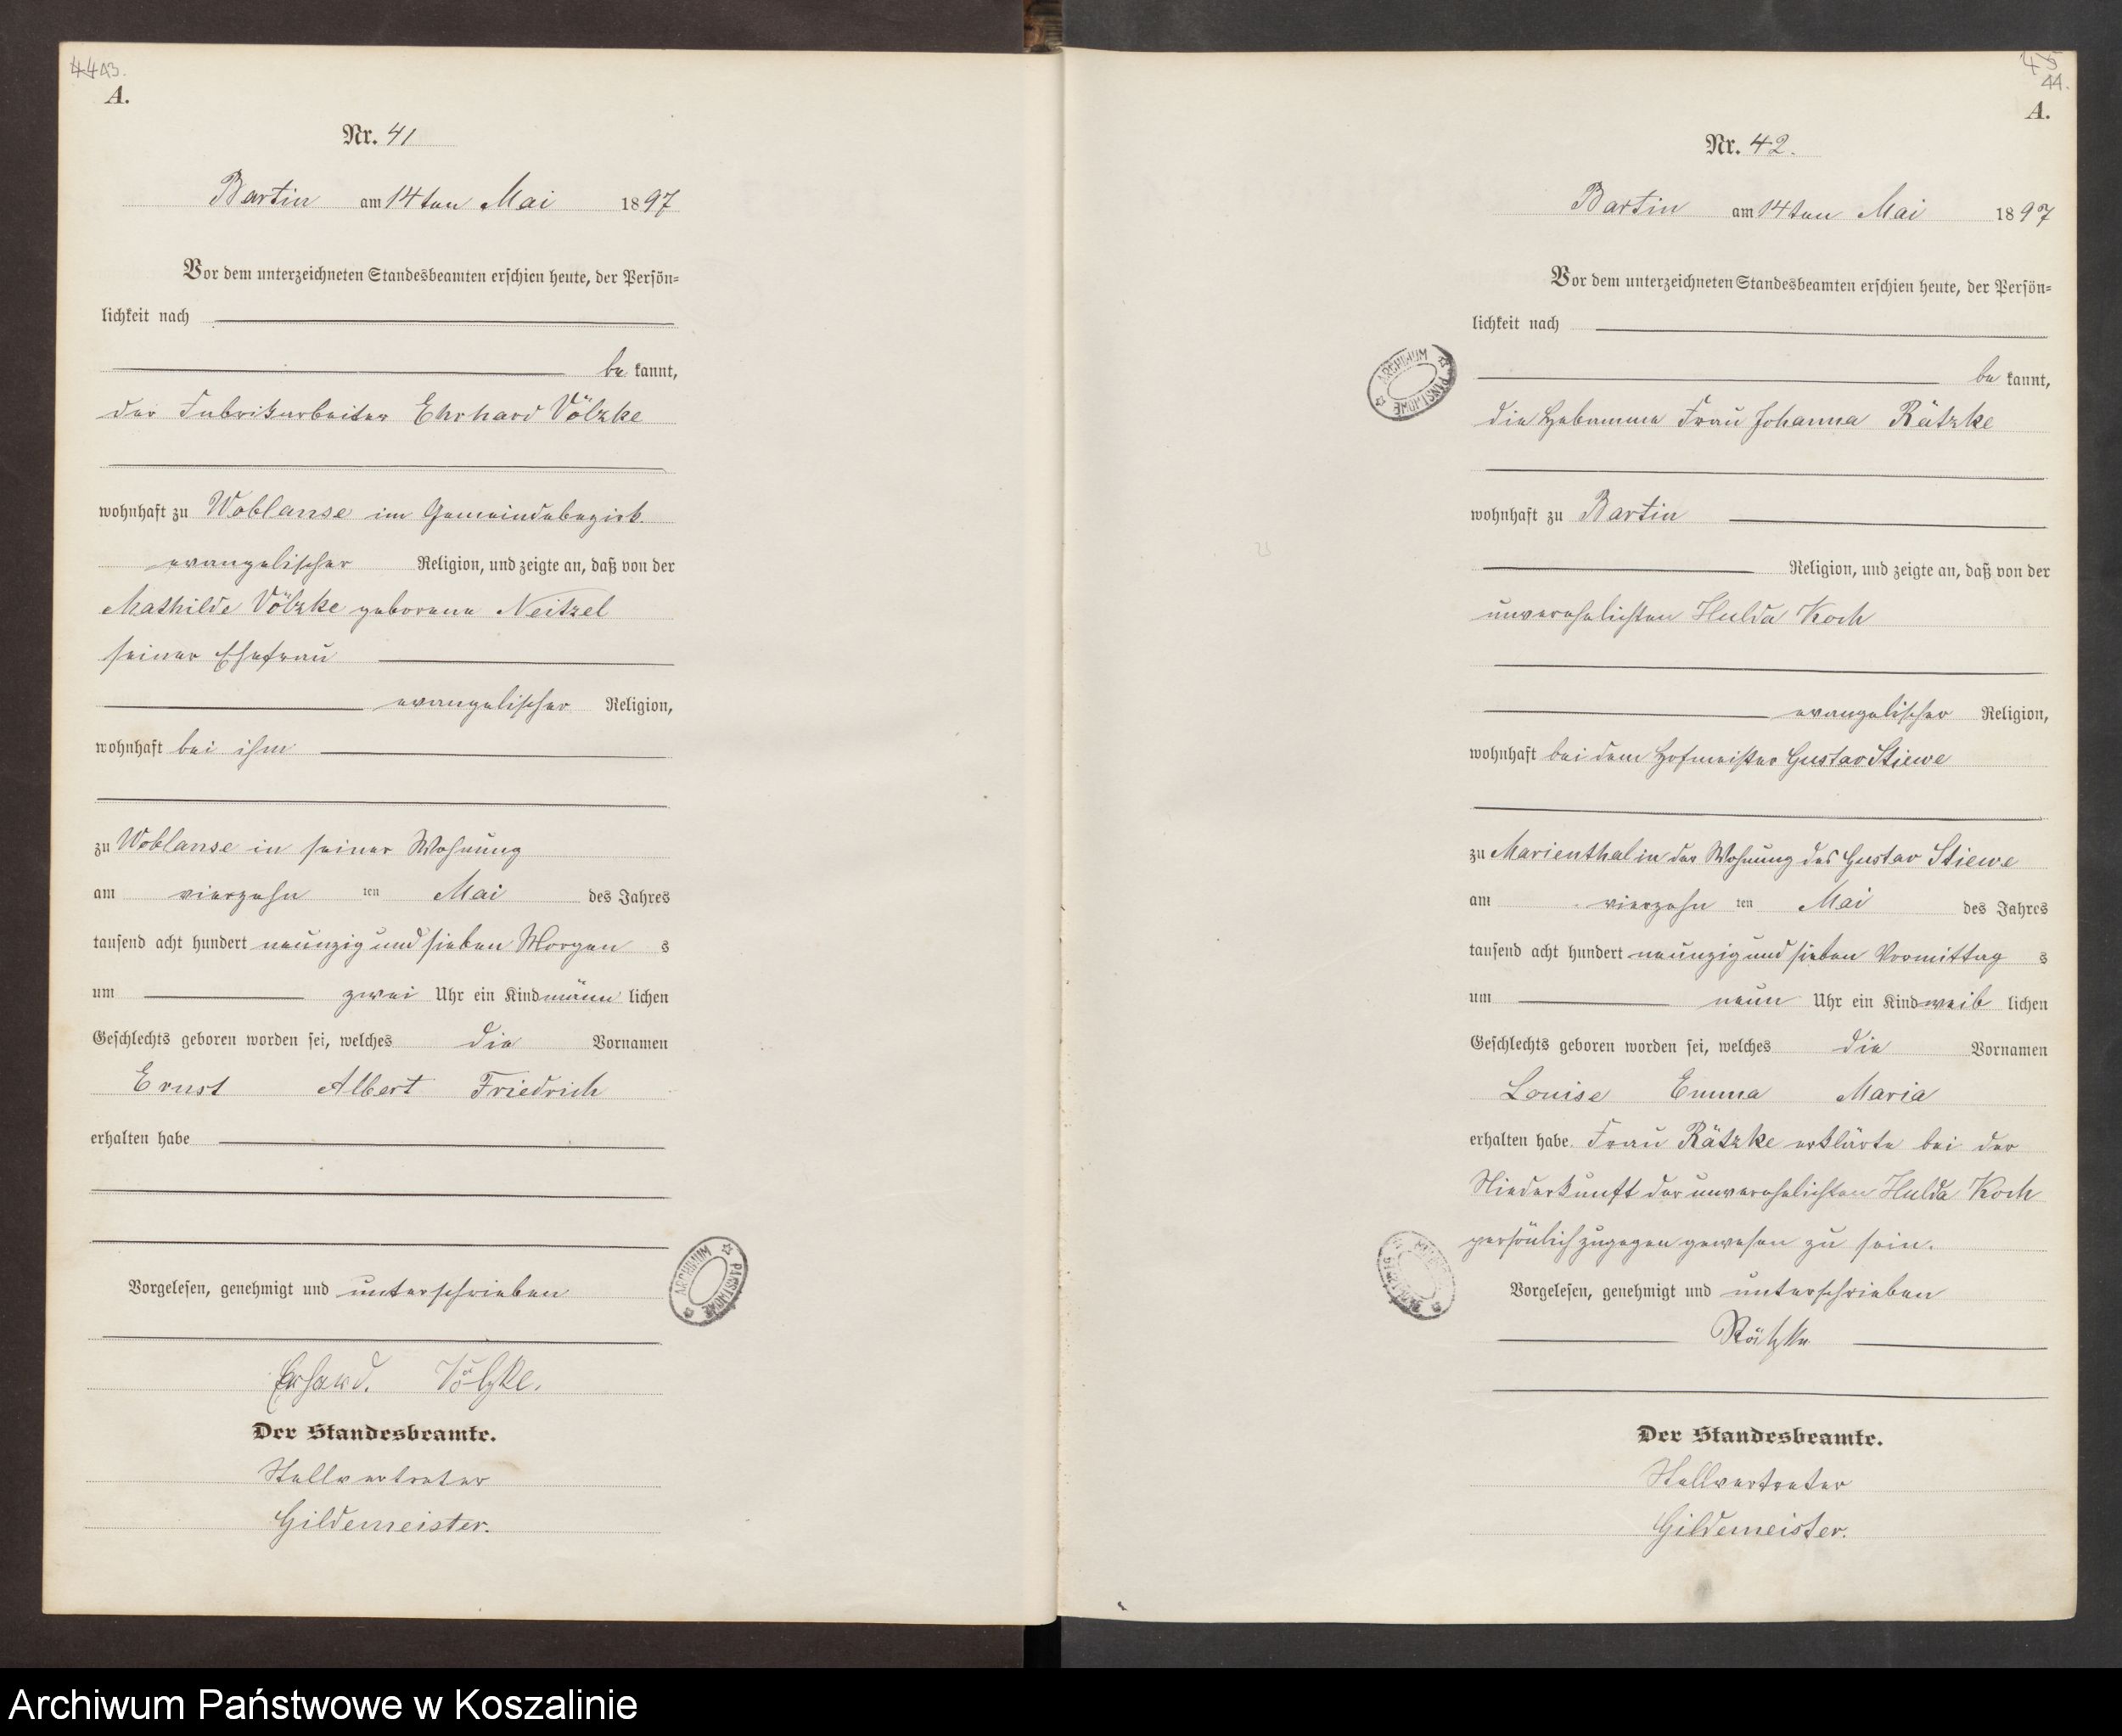 44 43.
A.
Nr. 41
Bartin am 14ten Mai 1897
Vor dem unterzeichneten Standesbeamten erschien heute, der Persön=
lichkeit nach
be kannt,
der Fabrikarbeiter Ehrhard Völzke
wohnhaft zu Woblanse im Gemeindebezirk
evangelischer Religion, und zeigte an, daß von der
Mathilde Völzke geborene Neitzel
seiner Ehefrau
evangelischer Religion,
wohnhaft bei ihm
zu Woblanse in seiner Wohnung
am vierzehn ten Mai des Jahres
tausend acht hundert neunzig und sieben Morgen s
um zwei Uhr ein Kind männ lichen
Geschlechts geboren worden sei, welches die Vornamen
Ernst Albert Friedrich
erhalten habe
Vorgelesen, genehmigt und unterschrieben
Erhard. Völzke.
Der Standesbeamte.
Stellvertreter
Gildemeister.
ARCHIWUM PAŃSTWOWE
45
44.
A.
Nr. 42.
Bartin am 14ten Mai 1897
Vor dem unterzeichneten Standesbeamten erschien heute, der Persön=
lichkeit nach
be kannt,
die Hebamme Frau Johanna Rätzke
wohnhaft zu Bartin
Religion, und zeigte an, daß von der
unverehelichten Hulda Koch
evangelischer Religion,
wohnhaft bei dem Hofmeister Gustav Stiewe
zu Marienthal in der Wohnung des Gustav Stiewe
am vierzehn ten Mai des Jahres
tausend acht hundert neunzig und sieben Vormittag s
um neun Uhr ein Kind weib lichen
Geschlechts geboren worden sei, welches die Vornamen
Louise Emma Maria
erhalten habe. Frau Rätzke erklärte bei der
Niederkunft der unverehelichten Hulda Koch
persönlich zugegen gewesen zu sein.
Vorgelesen, genehmigt und unterschrieben
Rätzke
Der Standesbeamte.
Stellvertreter
Gildemeister.
ARCHIWUM PAŃSTWOWE
Archiwum Państwowe w Koszalinie